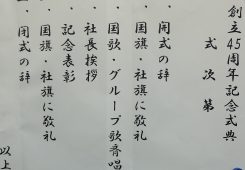 創立45周年記念式典
式次第
・開式の辞
・国旗・社旗に敬礼
・国歌・グループ歌斉唱
・社長挨拶
・記念表彰
・国旗・社旗に敬礼
・閉式の辞
以上